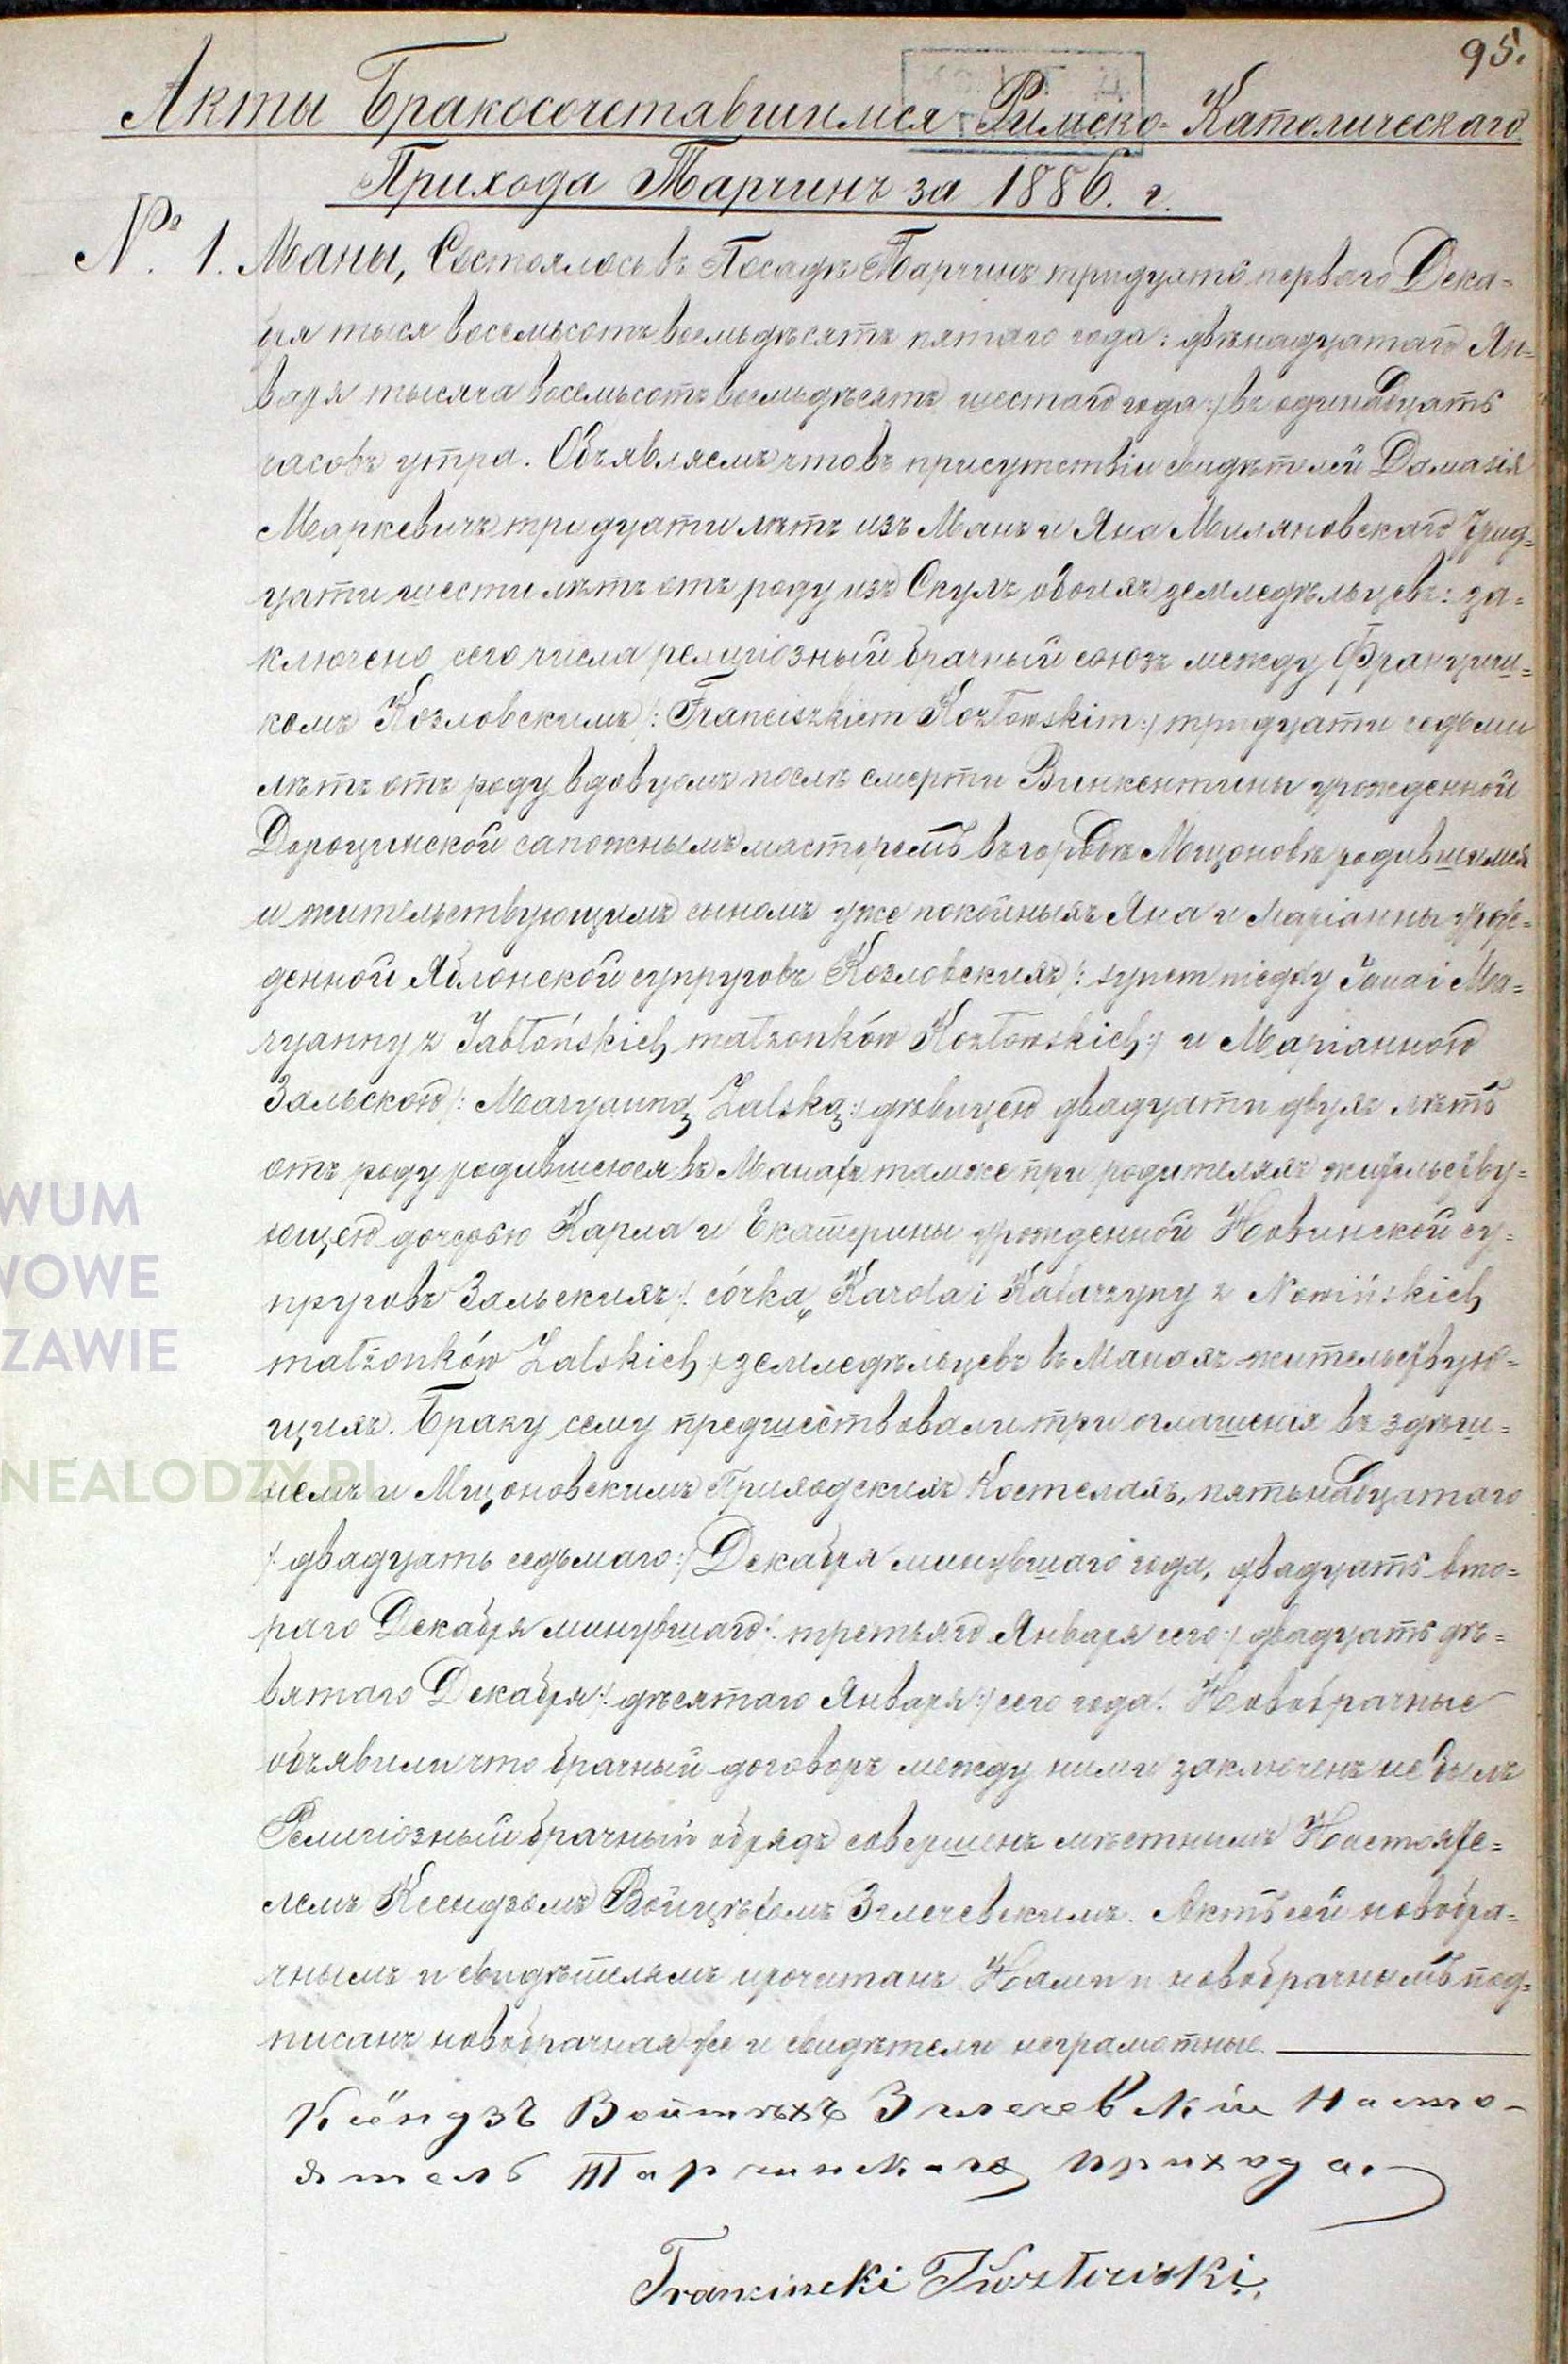 95.
Акты Бракосочетавшимся Римско-Католическаго
Прихода Тарчинъ за 1886. г.
№ 1. Маны, Состоялось въ Посадѣ Тарчинъ тридцать перваго Дека=
бря тыся восемьсотъ восемьдѣсятъ пятаго года: двѣнадцатаго Ян=
варя тысяча восемьсотъ восемьдѣсятъ шестаго года:/ въ одинадцать
часовъ утра. Объявляемъ что въ присутствіи свидѣтелей Дамазія
Маркевичъ тридцати лѣтъ изъ Манъ и Яна Миляновскаго трид=
цати шести лѣтъ отъ роду изъ Скулъ обоихъ земледѣльцевъ: за=
ключено сего числа религіозный брачный союзъ между Францищ=
комъ Козловскимъ /: Franciszkiem Kozłowskim:/ тридцати седьми
лѣтъ отъ роду вдовцомъ послѣ смерти Винкентины урожденной
Дороцинской сапожнымъ мастеромъ въ городѣ Мщоновѣ родившимся
и жительствующимъ сыномъ уже покойныхъ Яна и Маріанны урож=
денной Яблонской супруговъ Козловскихъ /: synem niegdy Jana i Ma=
ryanny z Jabłońskich małżonków Kozłowskich:/ и Маріанною
Зальскою /: Maryanną Zalską:/ дѣвицею двадцати двухъ лѣтъ
отъ роду родившеюся въ Манахъ тамже при родителяхъ жительству=
ющею дочерью Карла и Екатерины урожденной Новинской су=
пруговъ Зальскихъ /: córką Karola i Katarzyny z Nowińskich
małżonków Zalskich:/ земледѣльцевъ въ Манахъ жительствую=
щихъ. Браку сему предшествовали три оглашенія въ здѣш=
немъ и Мщоновскимъ Приходскихъ Костелахъ, пятьнадцатаго
/: двадцать седьмаго:/ Декабря минувшаго года, двадцать вто=
раго Декабря минувшаго /: третьяго Января сего:/ двадцать дѣ=
вятаго Декабря /: дѣсятаго Января:/ сего года. Новобрачные
объявили что брачный договоръ между ними заключенъ не былъ
Религіозный брачный обрядъ совершенъ мѣстнымъ Настояте=
лемъ Ксендзомъ Войцѣхомъ Зглечевскимъ. Актъ сей новобра=
чнымъ и свидѣтелямъ прочитанъ Нами и новобрачнымъ под=
писанъ новобрачная же и свидѣтели неграмотные.
Ксёндзъ Войтѣхъ Зглечевскій Насто-
ятель Тарчинскаго прихода.
Franciszki Kozłowski.
WUM
WOWE
ZAWIE
NEALODZY.PL